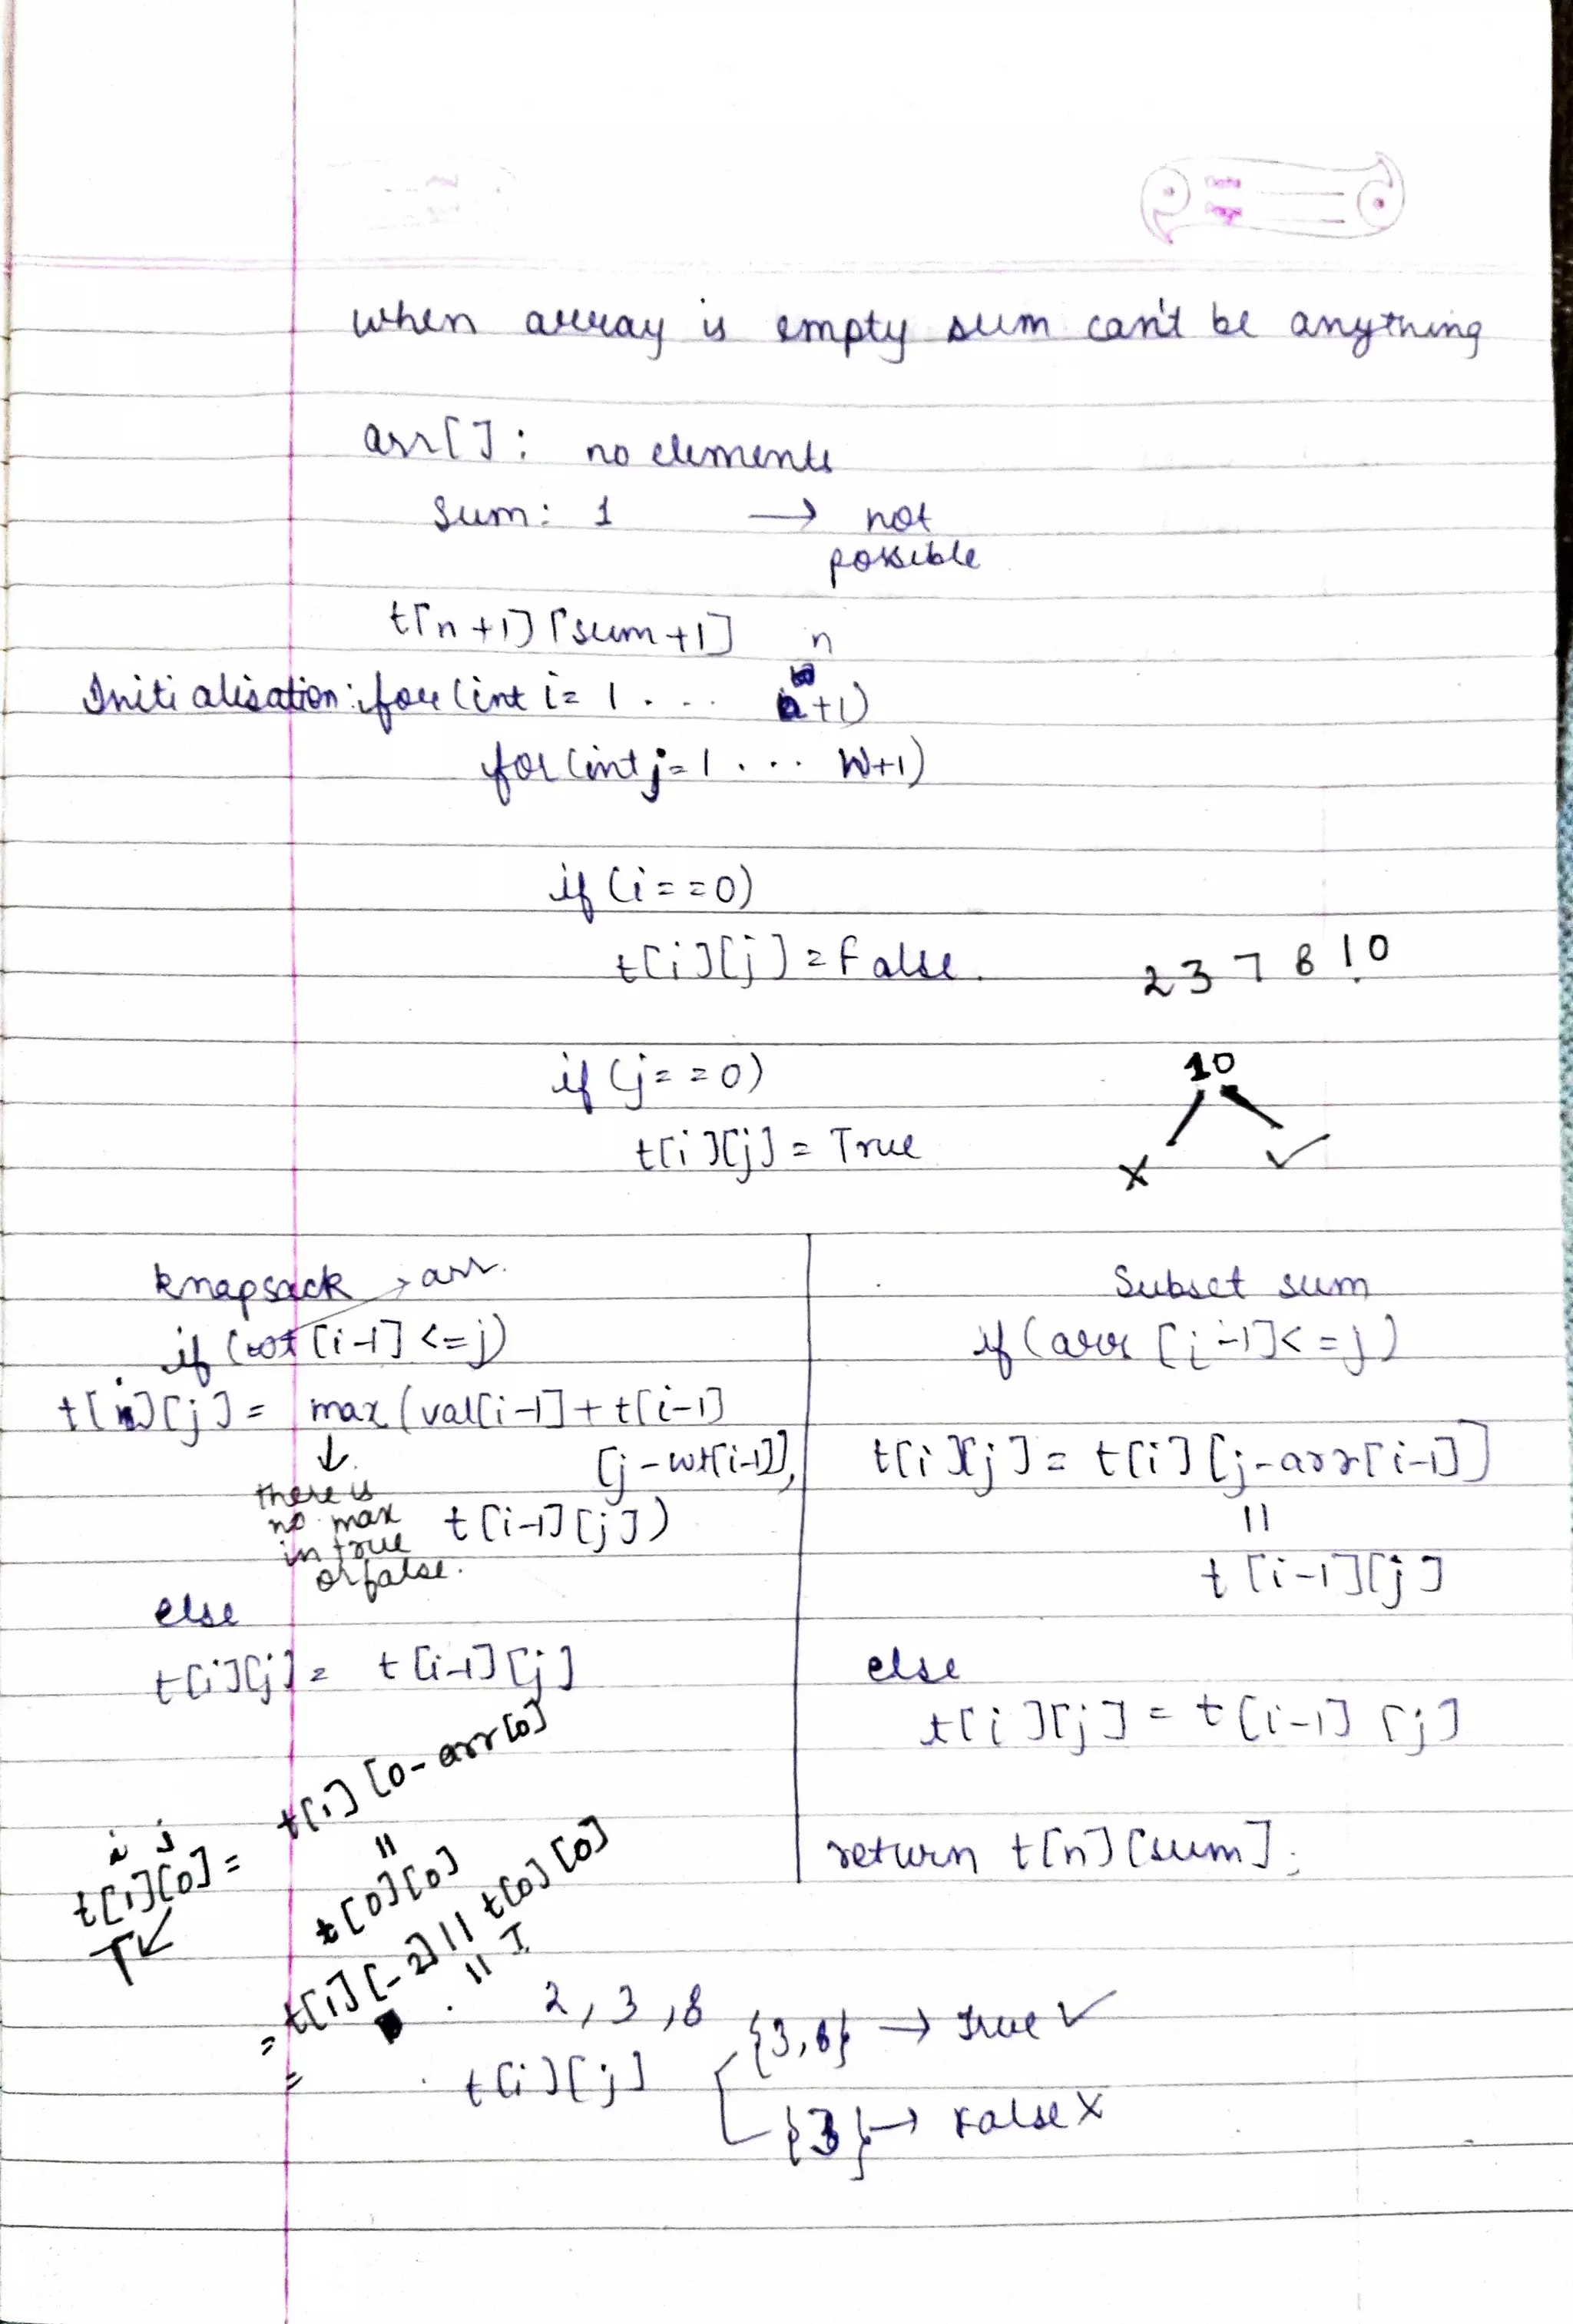 Date
Page
when array is empty sum can't be anything
arr[]: no elements
sum: 1 → not
possible
t[n+1][sum+1]
n
Initialisation: for (int i= 1 . . . +1)
for (int j=1 . . . W+1)
if (i==0)
t[i][j]=False.
2 3 7 8 10
if (j==0)
t[i][j] = True
10
x ✓
knapsack → arr.
if (wt[i-1]<=j)
t[i][j] = max(val[i-1]+t[i-1]
[j-wt[i-1]],
t[i-1][j])
↓
there is
no max
in true
or false.
else
t[i][j]= t[i-1][j]
Subset sum
if (arr[i-1]<=j)
t[i][j]= t[i][j-arr[i-1]]
||
t[i-1][j]
else
t[i][j] = t[i-1][j]
return t[n][sum];
i j
t[1][0] = t[1][0-arr[0]
||
t[0][0]
T
= t[1][-2] || t[0][0]
|| T
=
2, 3, 8
t[i][j]
{3,8} → True ✓
{3} → False x